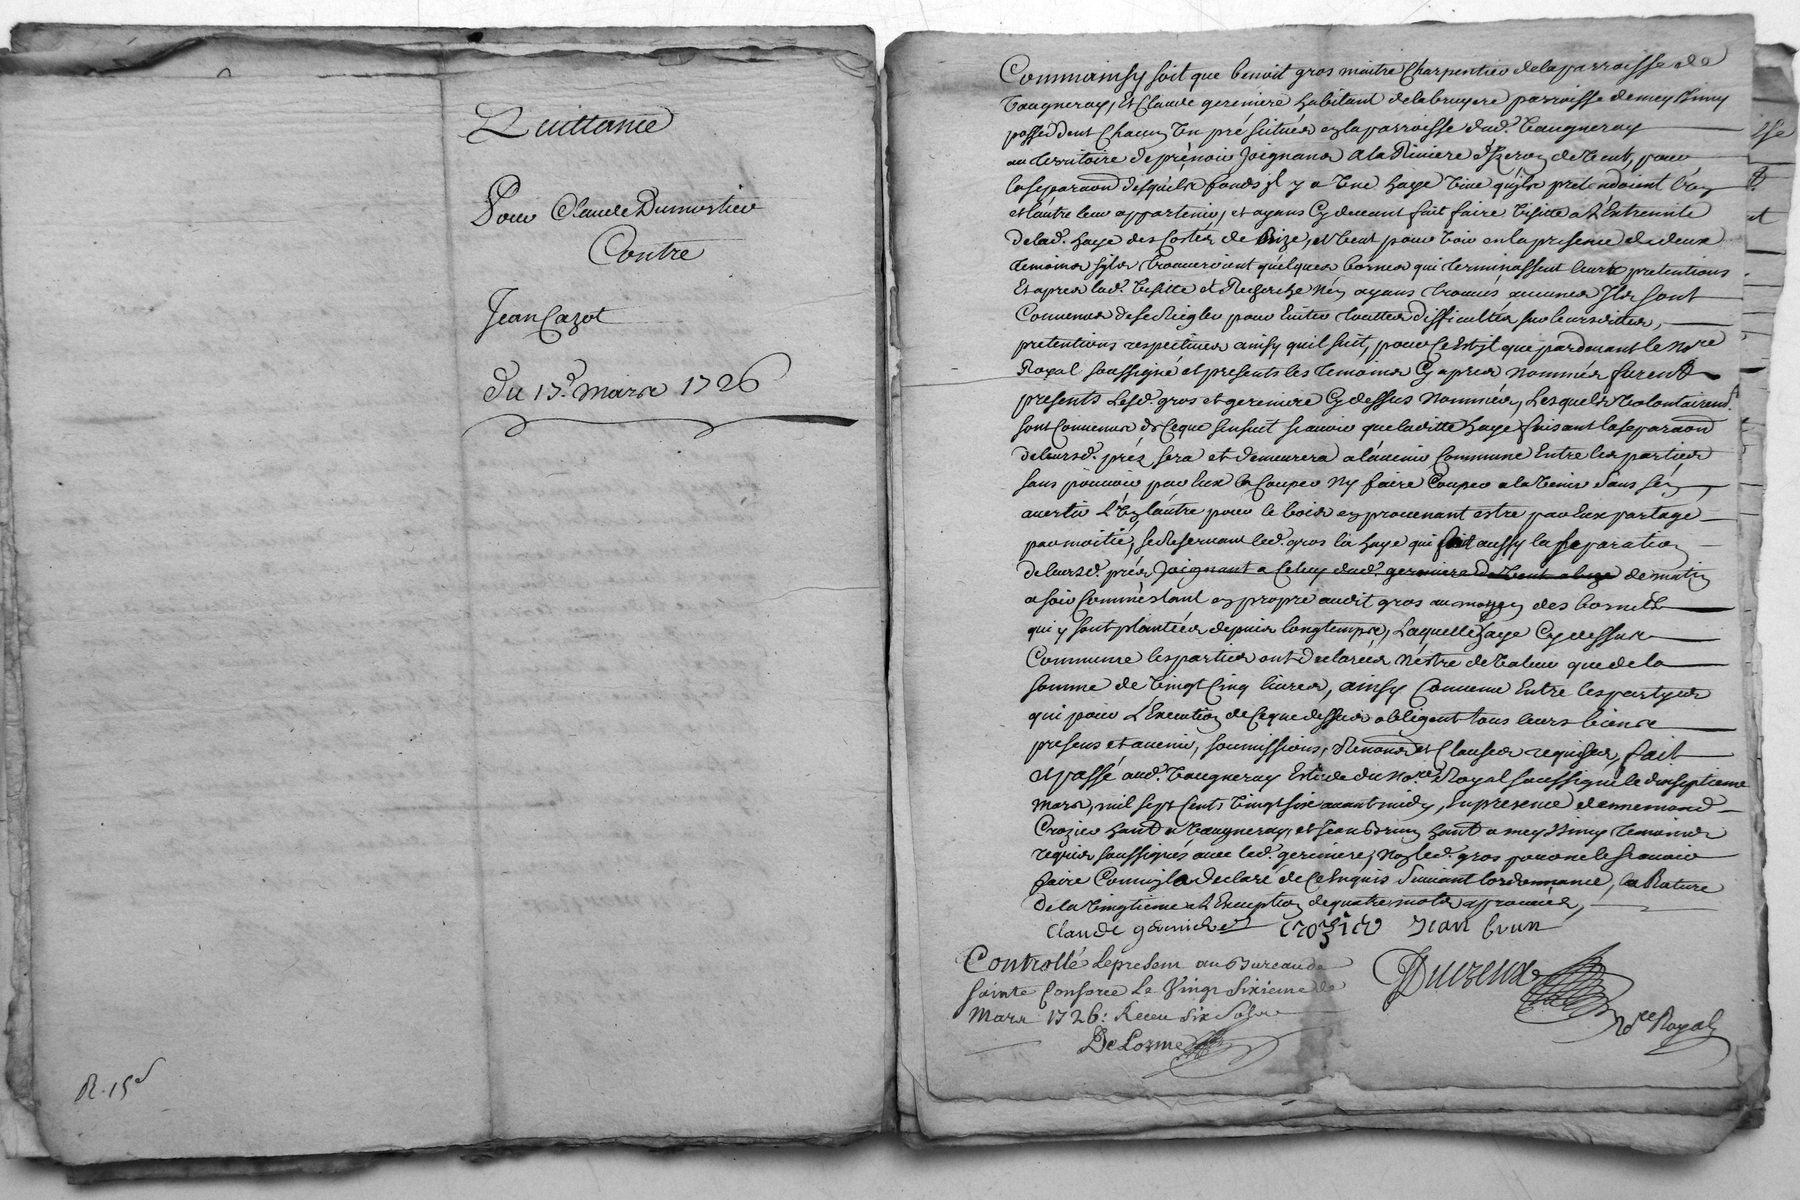 Quittance
Pour Claude Dumortier
Contre
Jean Cazot
Du 13.e Mars 1726
R. 15 d
Commainsy soit que benoit gros maitre Charpentier delaparroisse de
Vaugneray, Et Claude geriniere habitant delabruyere parroisse demeyssimy
possedent Chacun Un pré scitués en laparroisse dud. Vaugneray
au territoire de prénoir Joignans a la Riviere d'Yzeron de Vent, pour
laseparaon desquels fonds jl y a Une haye Vive quils pretendoient l'un
et lautre leur appartenir, et ayans Cy devant fait faire Visitte a l'Extremité
delad. haye des Costés de Bize, et Vent pour Voir en la presence de deux
temoins sjls trouveroient quelques bornes qui terminassent leurs pretentions
Et apres lad. Visitte et Recherche n'en ayans trouvés aucunes Jls sont
Convenus de se Reigler pour Eviter touttes difficultés sur leursdittes,
pretentions respectives ainsy quil suit, pour Ce Est jl que pardevant le Nore
Royal soussigné et presents les temoins Cy apres nommés furent
presents Lesd. gros et geriniere Cy dessus Nommés, Lesquels Volontairemt.
sont Convenus de Ceque sensuit scavoir que laditte haye faisant laseparaon
deleursd. préz sera et demeurera a l'avenir Commune Entre les parties
sans pouvoir par Eux la Couper Ny faire Couper a la Venir sans s'en
avertir l'Un l'autre pour le bois en provenant estre par Eux partagé
par moitié, se Reservant led. gros la haye qui fait aussy la separation
deleursd. prés Joignant a Celuy dud. geriniere de Vent a bize de matin
a soir Comme Estant en propre audit gros au moyen des bornes
qui y sont plantées depuis longtemps, Laquelle haye Cy dessus
Commune les parties ont declarées n'estre de Valeur que de la
somme de Vingt Cinq livres, ainsy Convenu Entre les partyes
qui pour l'Execution de Ceque dessus obligent tous leurs biens
presens et avenir, soumissions, Renonons et Clauses requises, fait
et passé aud. Vaugneray Estude du Nore Royal soussigné le dixseptieme
mars, mil sept Cents Vingt six avant midy, En presence d'ennemond
Crozier hant a Vaugneray, et Jean Brun hant a meyssimy temoins
requis soussignés avec led. geriniere, Non led. gros pour ne le scavoir
faire Comme jl a declaré de Ce Enquis Suivant l'ordonnance, la Rature
De la Vingtieme a l'Exception de quatre mots approuvée,
Claude geriniere Crozier Jean brun
Controllé Lepresent au Bureau de
Sainte Consorce Le Vingt Sixieme de
Mars 1726: Receu Six Sols
DeLorme
Nore Royal